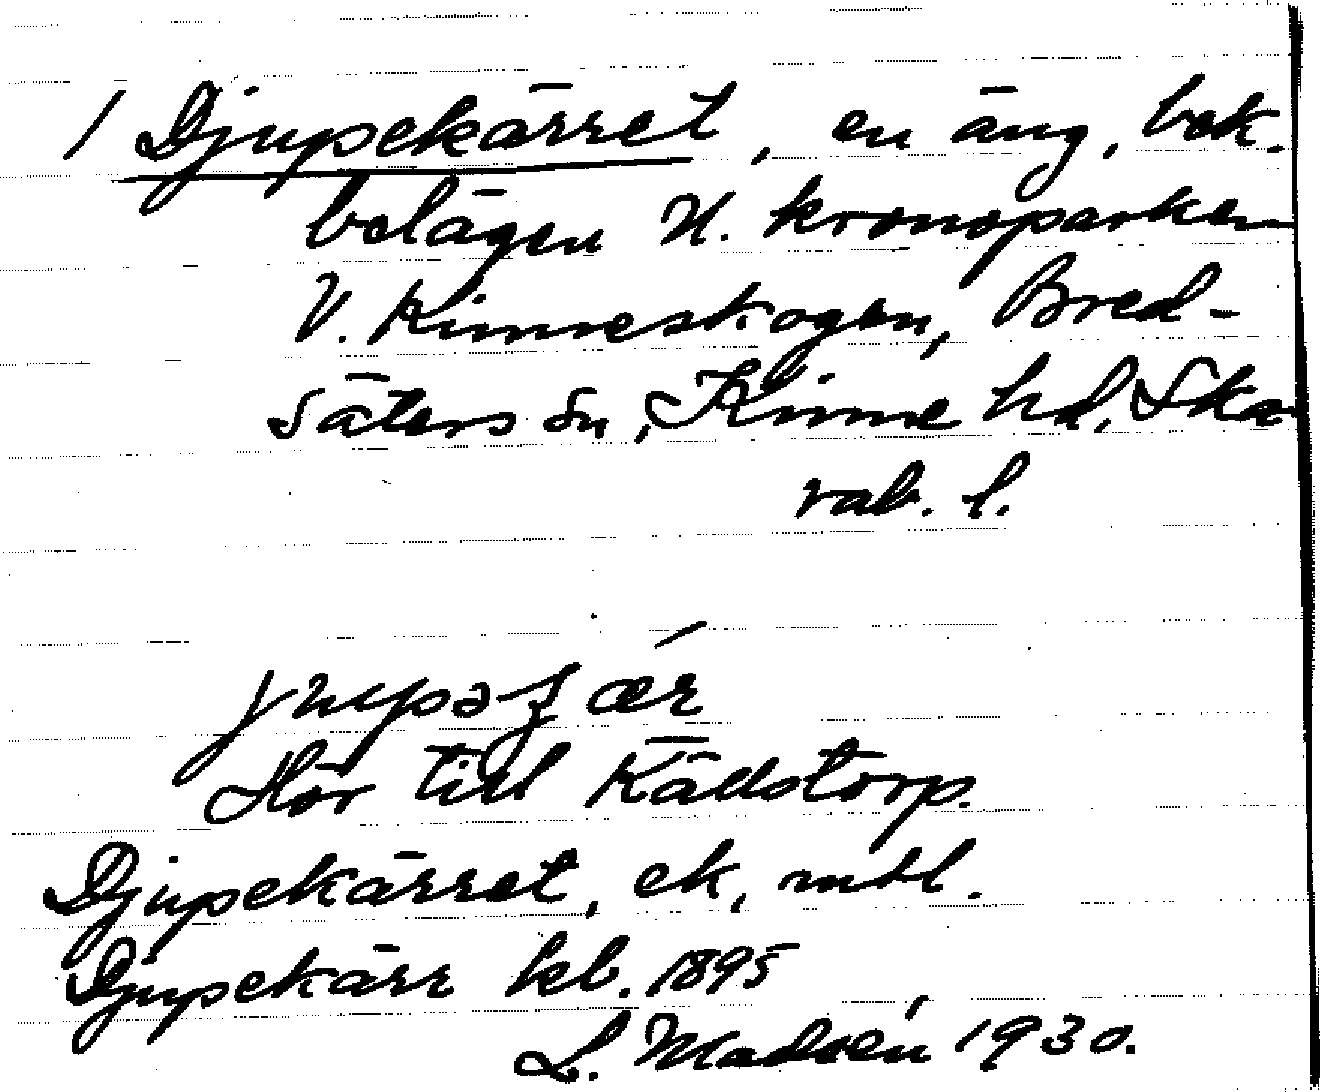 / Djupekärret, en äng, bek.
belägen N. kronoparken
V. Kinneskogen, Bred-
säters sn, Kinne hd, Ska
rab. l.
Hör till Källstorp.
Djupekärret, ek, mtbl.
Djupekärr kb. 1895
L. Madsén 1930.